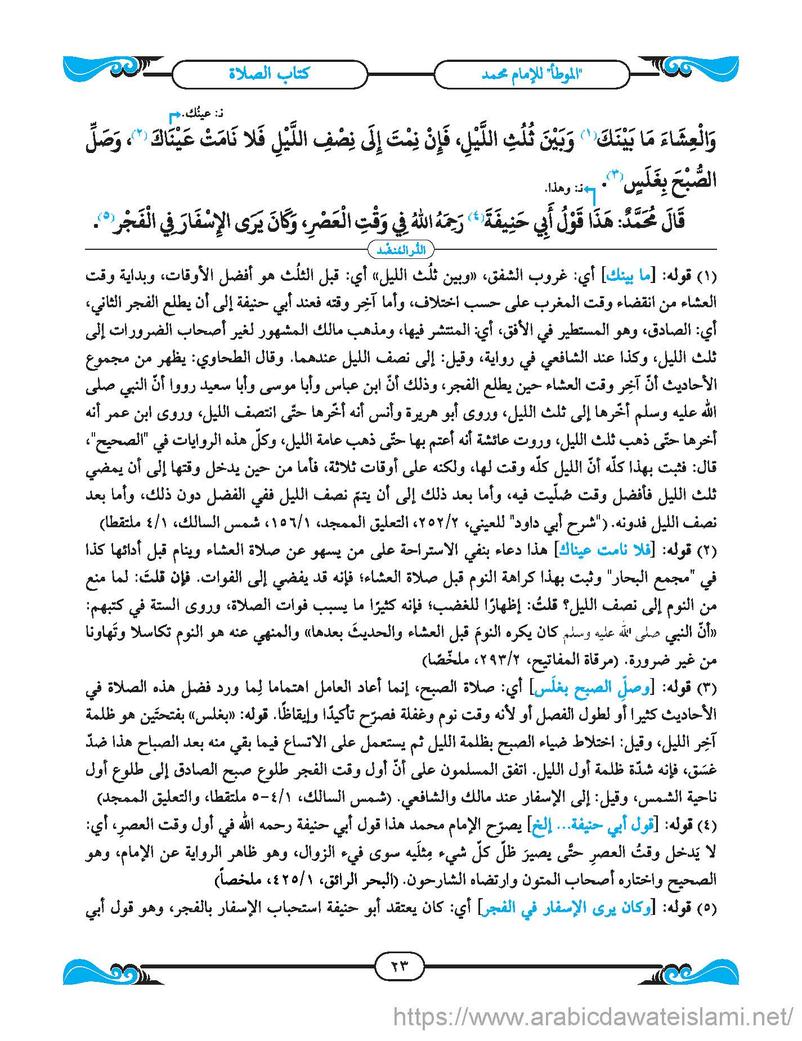 "الموطأ" للإمام محمد
كتاب الصلاة
نـ: عينُك.
وَالْعِشَاءَ مَا بَيْنَكَ (١) وَبَيْنَ ثُلُثِ اللَّيْلِ، فَإِنْ نِمْتَ إِلَى نِصْفِ اللَّيْلِ فَلا نَامَتْ عَيْنَاكَ (٢)، وَصَلِّ
الصُّبْحَ بِغَلَسٍ (٣).
نـ: وهذا.
قَالَ مُحَمَّدٌ: هَذَا قَوْلُ أَبِي حَنِيفَةَ (٤) رَحِمَهُ اللهُ فِي وَقْتِ الْعَصْرِ، وَكَانَ يَرَى الإِسْفَارَ فِي الْفَجْرِ (٥).
الدُّر المُنضَّد
(١) قوله: [ما بينك] أي: غروب الشفق، «وبين ثلُث الليل» أي: قبل الثلُث هو أفضل الأوقات، وبداية وقت
العشاء من انقضاء وقت المغرب على حسب اختلاف، وأما آخِر وقته فعند أبي حنيفة إلى أن يطلع الفجر الثاني،
أي: الصادق، وهو المستطير في الأفق، أي: المنتشر فيها، ومذهب مالك المشهور لغير أصحاب الضرورات إلى
ثلث الليل، وكذا عند الشافعي في رواية، وقيل: إلى نصف الليل عندهما. وقال الطحاوي: يظهر من مجموع
الأحاديث أنّ آخِر وقت العشاء حين يطلع الفجر، وذلك أنّ ابن عباس وأبا موسى وأبا سعيد رووا أنّ النبي صلى
الله عليه وسلم أخّرها إلى ثلث الليل، وروى أبو هريرة وأنس أنه أخّرها حتّى انتصف الليل، وروى ابن عمر أنه
أخرها حتّى ذهب ثلث الليل، وروت عائشة أنه أعتم بها حتّى ذهب عامة الليل، وكلّ هذه الروايات في "الصحيح"،
قال: فثبت بهذا كلّه أنّ الليل كلّه وقت لها، ولكنه على أوقات ثلاثة، فأما من حين يدخل وقتها إلى أن يمضي
ثلث الليل فأفضل وقت صُلّيت فيه، وأما بعد ذلك إلى أن يتمّ نصف الليل ففي الفضل دون ذلك، وأما بعد
نصف الليل فدونه. ("شرح أبي داود" للعيني، ٢٥٢/٢، التعليق الممجد، ١٥٦/١، شمس السالك، ٤/١ ملتقطا)
(٢) قوله: [فلا نامت عيناك] هذا دعاء بنفي الاستراحة على من يسهو عن صلاة العشاء وينام قبل أدائها كذا
في "مجمع البحار" وثبت بهذا كراهة النوم قبل صلاة العشاء؛ فإنه قد يفضي إلى الفوات. فإن قلتَ: لما منع
من النوم إلى نصف الليل؟ قلتُ: إظهارًا للغضب؛ فإنه كثيرًا ما يسبب فوات الصلاة، وروى الستة في كتبهم:
«أنّ النبي صلى الله عليه وسلم كان يكره النومَ قبل العشاء والحديثَ بعدها» والمنهي عنه هو النوم تكاسلا وتَهاونا
من غير ضرورة. (مرقاة المفاتيح، ٢٩٣/٢، ملخّصًا)
(٣) قوله: [وصلّ الصبح بغلَس] أي: صلاة الصبح، إنما أعاد العامل اهتماما لِما ورد فضل هذه الصلاة في
الأحاديث كثيرا أو لطول الفصل أو لأنه وقت نوم وغفلة فصرّح تأكيدًا وإيقاظًا. قوله: «بغلس» بفتحتَين هو ظلمة
آخِر الليل، وقيل: اختلاط ضياء الصبح بظلمة الليل ثم يستعمل على الاتساع فيما بقي منه بعد الصباح هذا ضدّ
غسَق، فإنه شدّة ظلمة أول الليل. اتفق المسلمون على أنّ أول وقت الفجر طلوع صبح الصادق إلى طلوع أول
ناحية الشمس، وقيل: إلى الإسفار عند مالك والشافعي. (شمس السالك، ٤/١-٥ ملتقطا، والتعليق الممجد)
(٤) قوله: [قول أبي حنيفة... إلخ] يصرّح الإمام محمد هذا قول أبي حنيفة رحمه الله في أول وقت العصرِ، أي:
لا يَدخل وقتُ العصرِ حتُّى يصيرَ ظلّ كلّ شيء مِثلَيه سوى فيء الزوال، وهو ظاهر الرواية عن الإمام، وهو
الصحيح واختاره أصحاب المتون وارتضاه الشارحون. (البحر الرائق، ٤٢٥/١، ملخصاً)
(٥) قوله: [وكان يرى الإسفار في الفجر] أي: كان يعتقد أبو حنيفة استحباب الإسفار بالفجر، وهو قول أبي
٢٣
https://www.arabicdawateislami.net/